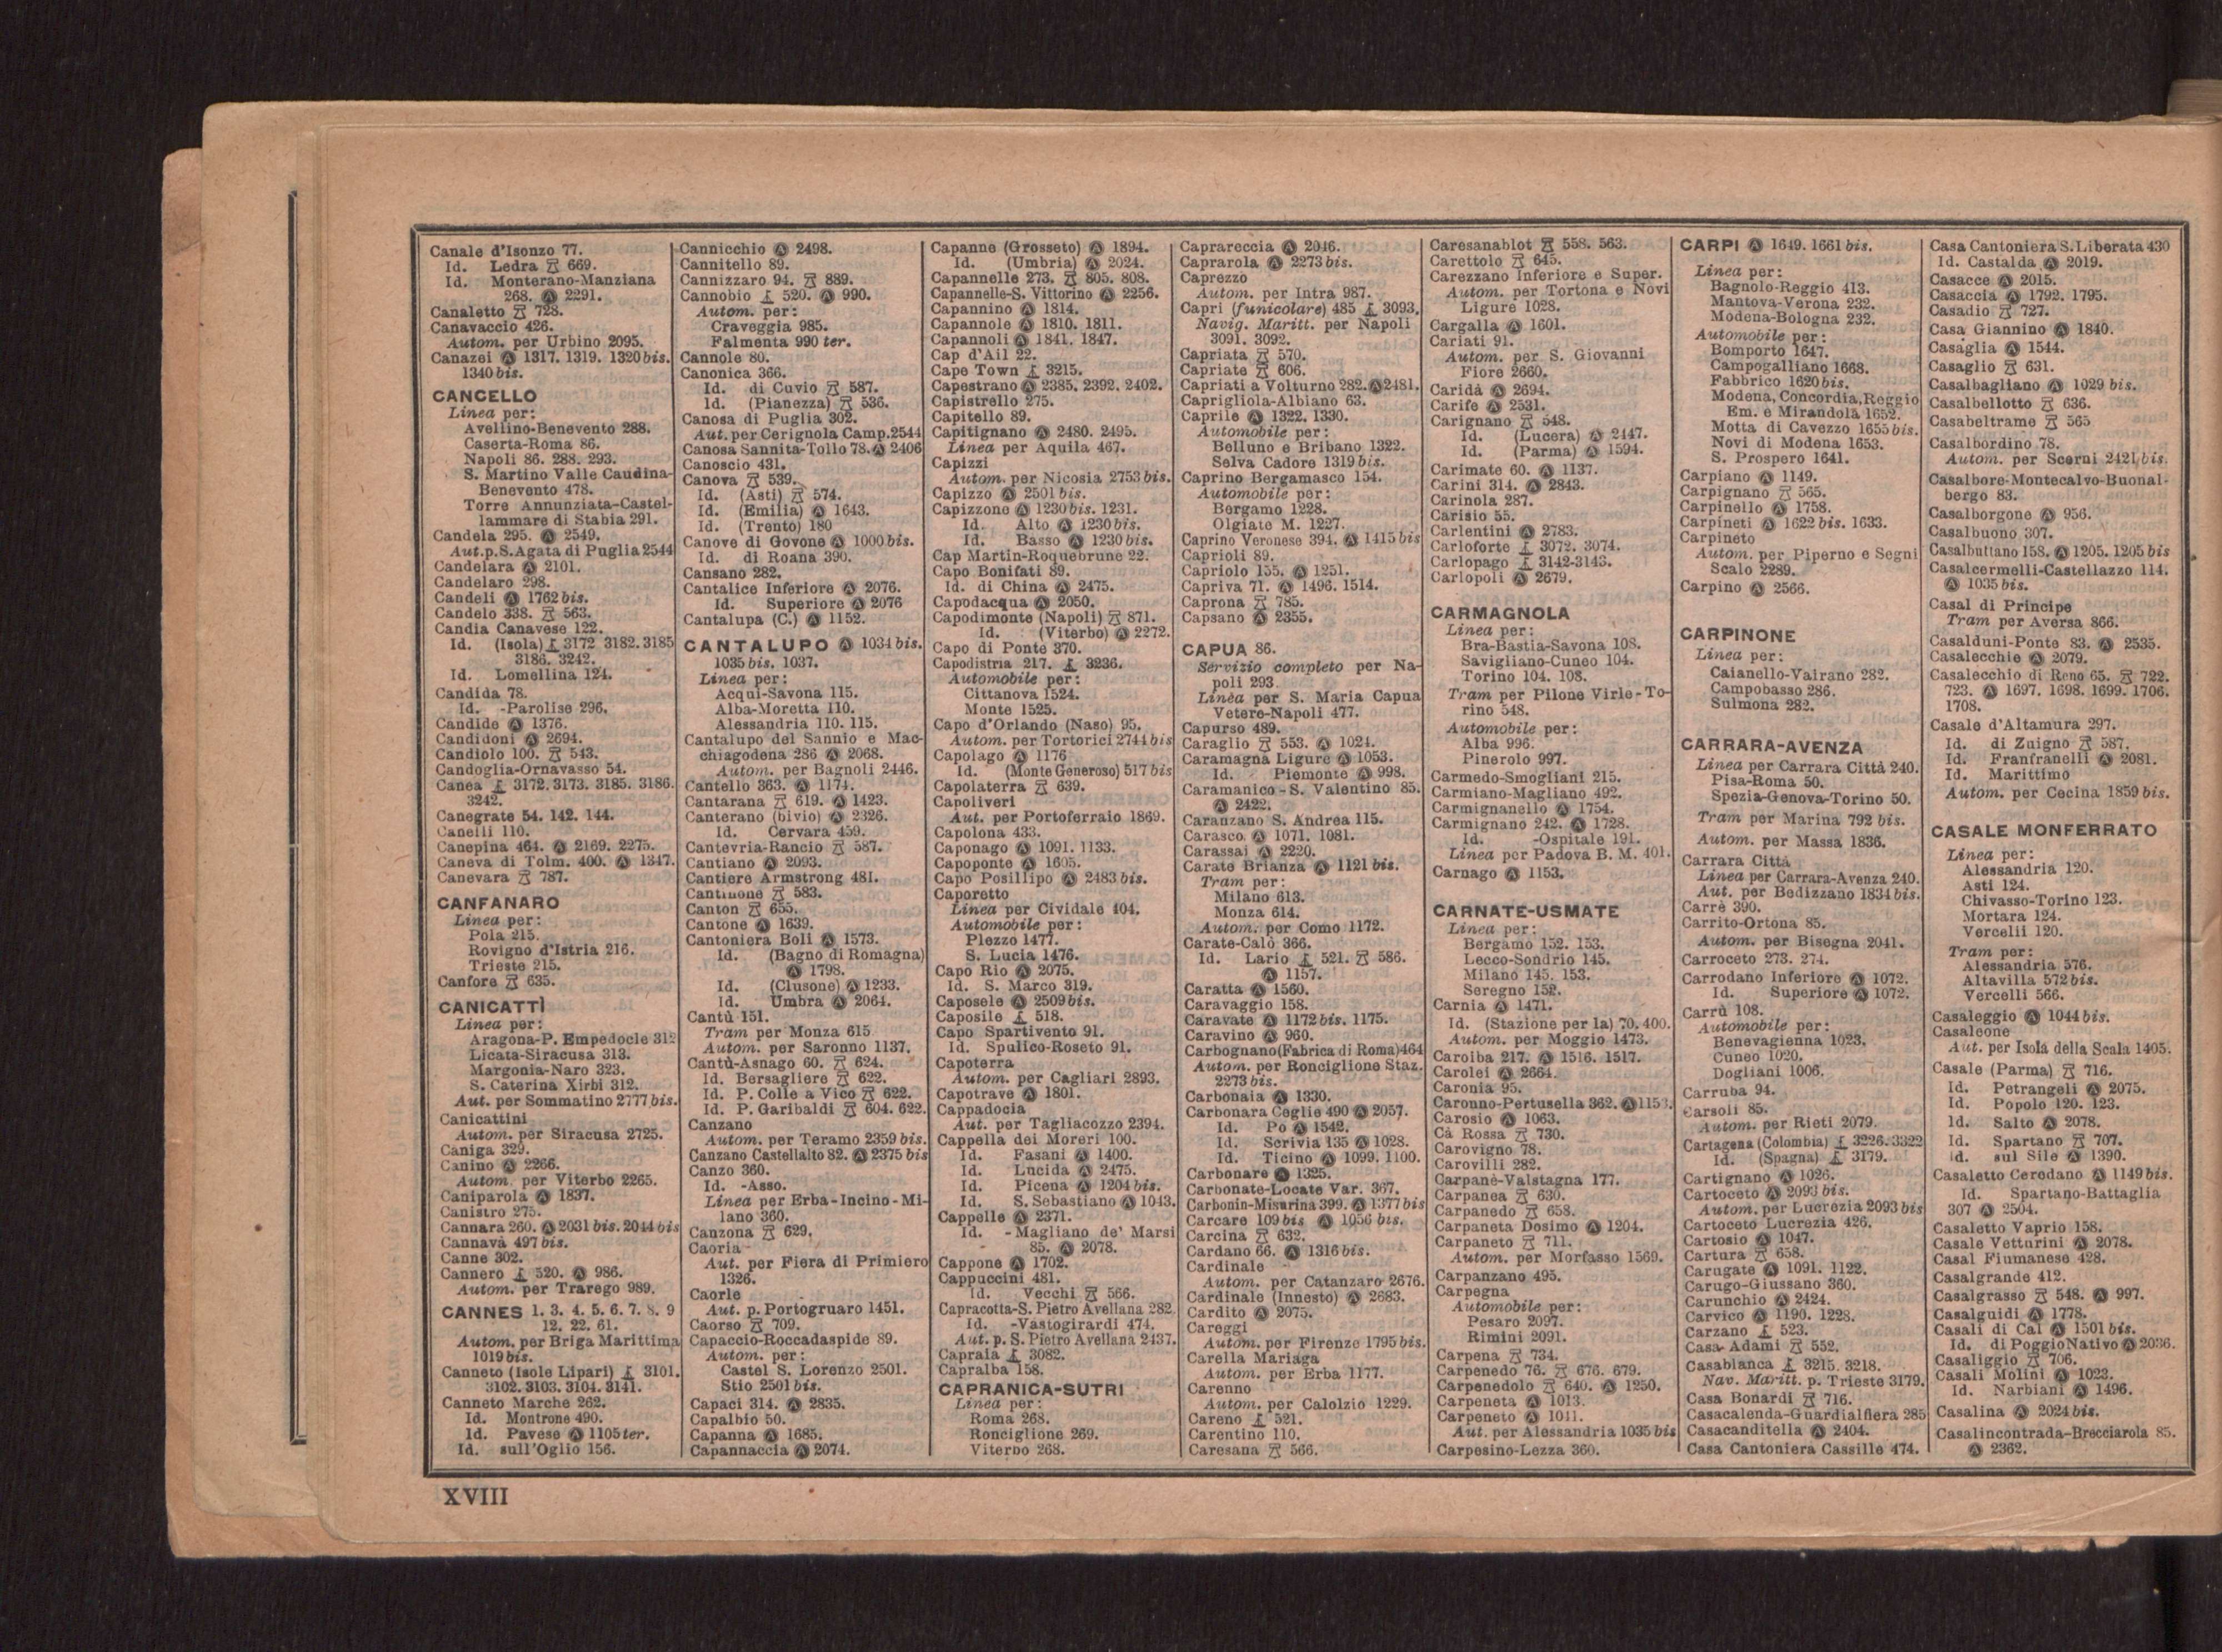 Canale d'Isonzo 77.
Id. Ledra 669.
Id. Monterano-Manziana
268. Ⓐ 2291.
Canaletto 728.
Canavaccio 426.
Autom. per Urbino 2095.
Canazei Ⓐ 1317. 1319. 1320 bis.
1340 bis.
CANCELLO
Linea per:
Avellino-Benevento 288.
Caserta-Roma 86.
Napoli 86. 288. 293.
S. Martino Valle Caudina-
Benevento 478.
Torre Annunziata-Castel-
lammare di Stabia 291.
Candela 295. Ⓐ 2549.
Aut.p.S.Agata di Puglia 2544
Candelara Ⓐ 2101.
Candelaro 298.
Candeli Ⓐ 1762 bis.
Candelo 338. 563.
Candia Canavese 122.
Id. (Isola) 3172 3182. 3185
3186. 3242.
Id. Lomellina 124.
Candida 78.
Id. -Parolise 296.
Candide Ⓐ 1376.
Candidoni Ⓐ 2694.
Candiolo 100. 543.
Candoglia-Ornavasso 54.
Canea 3172. 3173. 3185. 3186.
3242.
Canegrate 54. 142. 144.
Canelli 110.
Canepina 464. Ⓐ 2169. 2275.
Caneva di Tolm. 400. Ⓐ 1347.
Canevara 787.
CANFANARO
Linea per:
Pola 215.
Rovigno d'Istria 216.
Trieste 215.
Canfore 635.
CANICATTÌ
Linea per:
Aragona-P. Empedocle 312
Licata-Siracusa 313.
Margonia-Naro 323.
S. Caterina Xirbi 312.
Aut. per Sommatino 2777 bis.
Canicattini
Autom. per Siracusa 2725.
Caniga 329.
Canino Ⓐ 2266.
Autom. per Viterbo 2265.
Caniparola Ⓐ 1837.
Canistro 275.
Cannara 260. Ⓐ 2031 bis. 2044 bis
Cannavà 497 bis.
Canne 302.
Cannero 520. Ⓐ 986.
Autom. per Trarego 989.
CANNES 1. 3. 4. 5. 6. 7. 8. 9
12. 22. 61.
Autom. per Briga Marittima
1019 bis.
Canneto (Isole Lipari) 3101.
3102. 3103. 3104. 3141.
Canneto Marche 262.
Id. Montrone 490.
Id. Pavese Ⓐ 1105 ter.
Id. sull'Oglio 156.
Cannicchio Ⓐ 2498.
Cannitello 89.
Cannizzaro 94. 889.
Cannobio 520. Ⓐ 990.
Autom. per:
Craveggia 985.
Falmenta 990 ter.
Cannole 80.
Canonica 366.
Id. di Cuvio 587.
Id. (Pianezza) 536.
Canosa di Puglia 302.
Aut. per Cerignola Camp. 2544
Canosa Sannita-Tollo 78. Ⓐ 2406
Canoscio 431.
Canova 539.
Id. (Asti) 574.
Id. (Emilia) Ⓐ 1643.
Id. (Trento) 180
Canove di Govone Ⓐ 1000 bis.
Id. di Roana 390.
Cansano 282.
Cantalice Inferiore Ⓐ 2076.
Id. Superiore Ⓐ 2076
Cantalupa (C.) Ⓐ 1152.
CANTALUPO Ⓐ 1034 bis.
1035 bis. 1037.
Linea per:
Acqui-Savona 115.
Alba-Moretta 110.
Alessandria 110. 115.
Cantalupo del Sannio e Mac-
chiagodena 286 Ⓐ 2068.
Autom. per Bagnoli 2446.
Cantello 363. Ⓐ 1174.
Cantarana 619. Ⓐ 1423.
Canterano (bivio) Ⓐ 2326.
Id. Cervara 459.
Cantevria-Rancio 587.
Cantiano Ⓐ 2093.
Cantiere Armstrong 481.
Cantinone 583.
Canton 655.
Cantone Ⓐ 1639.
Cantoniera Boli Ⓐ 1573.
Id. (Bagno di Romagna)
Ⓐ 1798.
Id. (Clusone) Ⓐ 1233.
Id. Umbra Ⓐ 2064.
Cantù 151.
Tram per Monza 615
Autom. per Saronno 1137.
Cantù-Asnago 60. 624.
Id. Bersagliere 622.
Id. P. Colle a Vico 622.
Id. P. Garibaldi 604. 622.
Canzano
Autom. per Teramo 2359 bis.
Canzano Castellalto 82. Ⓐ 2375 bis
Canzo 360.
Id. -Asso.
Linea per Erba-Incino-Mi-
lano 360.
Canzona 629.
Caoria
Aut. per Fiera di Primiero
1326.
Caorle
Aut. p. Portogruaro 1451.
Caorso 709.
Capaccio-Roccadaspide 89.
Autom. per:
Castel S. Lorenzo 2501.
Stio 2501 bis.
Capaci 314. Ⓐ 2835.
Capalbio 50.
Capanna Ⓐ 1685.
Capannaccia Ⓐ 2074.
Capanne (Grosseto) Ⓐ 1894.
Id. (Umbria) Ⓐ 2024.
Capannelle 273. 805. 808.
Capannelle-S. Vittorino Ⓐ 2256.
Capannino Ⓐ 1814.
Capannole Ⓐ 1810. 1811.
Capannoli Ⓐ 1841. 1847.
Cap d'Ail 22.
Cape Town 3215.
Capestrano Ⓐ 2385. 2392. 2402.
Capistrello 275.
Capitello 89.
Capitignano Ⓐ 2480. 2495.
Linea per Aquila 467.
Capizzi
Autom. per Nicosia 2753 bis.
Capizzo Ⓐ 2501 bis.
Capizzone Ⓐ 1230 bis. 1231.
Id. Alto Ⓐ 1230 bis.
Id. Basso Ⓐ 1230 bis.
Cap Martin-Roquebrune 22.
Capo Bonifati 89.
Id. di China Ⓐ 2475.
Capodacqua Ⓐ 2050.
Capodimonte (Napoli) 871.
Id. (Viterbo) Ⓐ 2272.
Capo di Ponte 370.
Capodistria 217. 3236.
Automobile per:
Cittanova 1524.
Monte 1525.
Capo d'Orlando (Naso) 95.
Autom. per Tortorici 2744 bis
Capolago Ⓐ 1176
Id. (Monte Generoso) 517 bis
Capolaterra 639.
Capoliveri
Aut. per Portoferraio 1869.
Capolona 433.
Caponago Ⓐ 1091. 1133.
Capoponte Ⓐ 1605.
Capo Posillipo Ⓐ 2483 bis.
Caporetto
Linea per Cividale 404.
Automobile per:
Plezzo 1477.
S. Lucia 1476.
Capo Rio Ⓐ 2075.
Id. S. Marco 319.
Caposele Ⓐ 2509 bis.
Caposile 518.
Capo Spartivento 91.
Id. Spulico-Roseto 91.
Capoterra
Autom. per Cagliari 2893.
Capotrave Ⓐ 1801.
Cappadocia
Aut. per Tagliacozzo 2394.
Cappella dei Moreri 100.
Id. Fasani Ⓐ 1400.
Id. Lucida Ⓐ 2475.
Id. Picena Ⓐ 1204 bis.
Id. S. Sebastiano Ⓐ 1043.
Cappelle Ⓐ 2371.
Id. - Magliano de' Marsi
85. Ⓐ 2078.
Cappone Ⓐ 1702.
Cappuccini 481.
Id. Vecchi 566.
Capracotta-S. Pietro Avellana 282
Id. -Vastogirardi 474.
Aut. p. S. Pietro Avellana 2437.
Capraia 3082.
Capralba 158.
CAPRANICA-SUTRI
Linea per:
Roma 268.
Ronciglione 269.
Viterbo 268.
Caprareccia Ⓐ 2046.
Caprarola Ⓐ 2273 bis.
Caprezzo
Autom. per Intra 987.
Capri (funicolare) 485 3093.
Navig. Maritt. per Napoli
3091. 3092.
Capriata 570.
Capriate 606.
Capriati a Volturno 282. Ⓐ 2481.
Caprigliola-Albiano 63.
Caprile Ⓐ 1322. 1330.
Automobile per:
Belluno e Bribano 1322.
Selva Cadore 1319 bis.
Caprino Bergamasco 154.
Automobile per:
Bergamo 1228.
Olgiate M. 1227.
Caprino Veronese 394. Ⓐ 1415 bis
Caprioli 89.
Capriolo 155. Ⓐ 1251.
Capriva 71. Ⓐ 1496. 1514.
Caprona 785.
Capsano Ⓐ 2355.
CAPUA 86.
Servizio completo per Na-
poli 293.
Linea per S. Maria Capua
Vetere-Napoli 477.
Capurso 489.
Caraglio 553. Ⓐ 1024.
Caramagna Ligure Ⓐ 1053.
Id. Piemonte Ⓐ 998.
Caramanico - S. Valentino 85.
Ⓐ 2422.
Caranzano S. Andrea 115.
Carasco Ⓐ 1071. 1081.
Carassai Ⓐ 2220.
Carate Brianza Ⓐ 1121 bis.
Tram per:
Milano 613.
Monza 614.
Autom. per Como 1172.
Carate-Calò 366.
Id. Lario 521. 586.
Ⓐ 1157.
Caratta Ⓐ 1560.
Caravaggio 158.
Caravate Ⓐ 1172 bis. 1175.
Caravino Ⓐ 960.
Carbognano (Fabrica di Roma) 464
Autom. per Ronciglione Staz.
2273 bis.
Carbonaia Ⓐ 1330.
Carbonara Ceglie 490 Ⓐ 2057.
Id. Po Ⓐ 1542.
Id. Scrivia 135 Ⓐ 1028.
Id. Ticino Ⓐ 1099. 1100.
Carbonare Ⓐ 1325.
Carbonate-Locate Var. 367.
Carbonin-Misurina 399. Ⓐ 1377 bis
Carcare 109 bis Ⓐ 1056 bis.
Carcina 632.
Cardano 66. Ⓐ 1316 bis.
Cardinale
Autom. per Catanzaro 2676.
Cardinale (Innesto) Ⓐ 2683.
Cardito Ⓐ 2075.
Careggi
Autom. per Firenze 1795 bis.
Carella Mariaga
Autom. per Erba 1177.
Carenno
Autom. per Calolzio 1229.
Careno 521.
Carentino 110.
Caresana 566.
Caresanablot 558. 563.
Carettolo 645.
Carezzano Inferiore e Super.
Autom. per Tortona e Novi
Ligure 1028.
Cargalla Ⓐ 1601.
Cariati 91.
Autom. per S. Giovanni
Fiore 2660.
Caridà Ⓐ 2694.
Carife Ⓐ 2531.
Carignano 548.
Id. (Lucera) Ⓐ 2447.
Id. (Parma) Ⓐ 1594.
Carimate 60. Ⓐ 1137.
Carini 314. Ⓐ 2843.
Carinola 287.
Carisio 55.
Carlentini Ⓐ 2783.
Carloforte 3072. 3074.
Carlopago 3142-3143.
Carlopoli Ⓐ 2679.
CARMAGNOLA
Linea per:
Bra-Bastia-Savona 108.
Savigliano-Cuneo 104.
Torino 104. 108.
Tram per Pilone Virle-To-
rino 548.
Automobile per:
Alba 996.
Pinerolo 997.
Carmedo-Smogliani 215.
Carmiano-Magliano 492.
Carmignanello Ⓐ 1754.
Carmignano 242. Ⓐ 1728.
Id. -Ospitale 191.
Linea per Padova B. M. 401.
Carnago Ⓐ 1153.
CARNATE-USMATE
Linea per:
Bergamo 152. 153.
Lecco-Sondrio 145.
Milano 145. 153.
Seregno 152.
Carnia Ⓐ 1471.
Id. (Stazione per la) 70. 400.
Autom. per Moggio 1473.
Caroiba 217. Ⓐ 1516. 1517.
Carolei Ⓐ 2664.
Caronia 95.
Caronno-Pertusella 362. Ⓐ 1153.
Carosio Ⓐ 1063.
Cà Rossa 730.
Carovigno 78.
Carovilli 282.
Carpanè-Valstagna 177.
Carpanea 630.
Carpanedo 658.
Carpaneta Dosimo Ⓐ 1204.
Carpaneto 711.
Autom. per Morfasso 1569.
Carpanzano 495.
Carpegna
Automobile per:
Pesaro 2097.
Rimini 2091.
Carpena 734.
Carpenedo 76. 676. 679.
Carpenedolo 640. Ⓐ 1250.
Carpeneta Ⓐ 1013.
Carpeneto Ⓐ 1011.
Aut. per Alessandria 1035 bis
Carpesino-Lezza 360.
CARPI Ⓐ 1649. 1661 bis.
Linea per:
Bagnolo-Reggio 413.
Mantova-Verona 232.
Modena-Bologna 232.
Automobile per:
Bomporto 1647.
Campogalliano 1668.
Fabbrico 1620 bis.
Modena, Concordia, Reggio
Em. e Mirandola 1652.
Motta di Cavezzo 1655 bis.
Novi di Modena 1653.
S. Prospero 1641.
Carpiano Ⓐ 1149.
Carpignano 565.
Carpinello Ⓐ 1758.
Carpineti Ⓐ 1622 bis. 1633.
Carpineto
Autom. per Piperno e Segni
Scalo 2289.
Carpino Ⓐ 2566.
CARPINONE
Linea per:
Caianello-Vairano 282.
Campobasso 286.
Sulmona 282.
CARRARA-AVENZA
Linea per Carrara Città 240.
Pisa-Roma 50.
Spezia-Genova-Torino 50.
Tram per Marina 792 bis.
Autom. per Massa 1836.
Carrara Città
Linea per Carrara-Avenza 240.
Aut. per Bedizzano 1834 bis.
Carrè 390.
Carrito-Ortona 85.
Autom. per Bisegna 2041.
Carroceto 273. 274.
Carrodano Inferiore Ⓐ 1072.
Id. Superiore Ⓐ 1072.
Carrù 108.
Automobile per:
Benevagienna 1023.
Cuneo 1020.
Dogliani 1006.
Carruba 94.
Carsoli 85.
Autom. per Rieti 2079.
Cartagena (Colombia) 3226. 3322
Id. (Spagna) 3179.
Cartignano Ⓐ 1026.
Cartoceto Ⓐ 2093 bis.
Autom. per Lucrezia 2093 bis
Cartoceto Lucrezia 426.
Cartosio Ⓐ 1047.
Cartura 658.
Carugate Ⓐ 1091. 1122.
Carugo-Giussano 360.
Carunchio Ⓐ 2424.
Carvico Ⓐ 1190. 1228.
Carzano 523.
Casa Adami 552.
Casabianca 3215. 3218.
Nav. Maritt. p. Trieste 3179.
Casa Bonardi 716.
Casacalenda-Guardialfiera 285
Casacanditella Ⓐ 2404.
Casa Cantoniera Cassille 474.
Casa Cantoniera S. Liberata 430
Id. Castalda Ⓐ 2019.
Casacce Ⓐ 2015.
Casaccia Ⓐ 1792. 1795.
Casadio 727.
Casa Giannino Ⓐ 1840.
Casaglia Ⓐ 1544.
Casaglio 631.
Casalbagliano Ⓐ 1029 bis.
Casalbellotto 636.
Casabeltrame 565
Casalbordino 78.
Autom. per Scerni 2421 bis.
Casalbore-Montecalvo-Buonal-
bergo 83.
Casalborgone Ⓐ 956.
Casalbuono 307.
Casalbuttano 158. Ⓐ 1205. 1205 bis
Casalcermelli-Castellazzo 114.
Ⓐ 1035 bis.
Casal di Principe
Tram per Aversa 866.
Casalduni-Ponte 83. Ⓐ 2535.
Casalecchie Ⓐ 2079.
Casalecchio di Reno 65. 722.
723. Ⓐ 1697. 1698. 1699. 1706.
1708.
Casale d'Altamura 297.
Id. di Zuigno 587.
Id. Franfranelli Ⓐ 2081.
Id. Marittimo
Autom. per Cecina 1859 bis.
CASALE MONFERRATO
Linea per:
Alessandria 120.
Asti 124.
Chivasso-Torino 123.
Mortara 124.
Vercelli 120.
Tram per:
Alessandria 576.
Altavilla 572 bis.
Vercelli 566.
Casaleggio Ⓐ 1044 bis.
Casaleone
Aut. per Isola della Scala 1405.
Casale (Parma) 716.
Id. Petrangeli Ⓐ 2075.
Id. Popolo 120. 123.
Id. Salto Ⓐ 2078.
Id. Spartano 707.
id. sul Sile Ⓐ 1390.
Casaletto Ceredano Ⓐ 1149 bis.
Id. Spartano-Battaglia
307 Ⓐ 2504.
Casaletto Vaprio 158.
Casale Vetturini Ⓐ 2078.
Casal Fiumanese 428.
Casalgrande 412.
Casalgrasso 548. Ⓐ 997.
Casalguidi Ⓐ 1778.
Casali di Cal Ⓐ 1501 bis.
Id. di Poggio Nativo Ⓐ 2036.
Casaliggio 706.
Casali Molini Ⓐ 1023.
Id. Narbiani Ⓐ 1496.
Casalina Ⓐ 2024 bis.
Casalincontrada-Brecciarola 85.
Ⓐ 2362.
XVIII